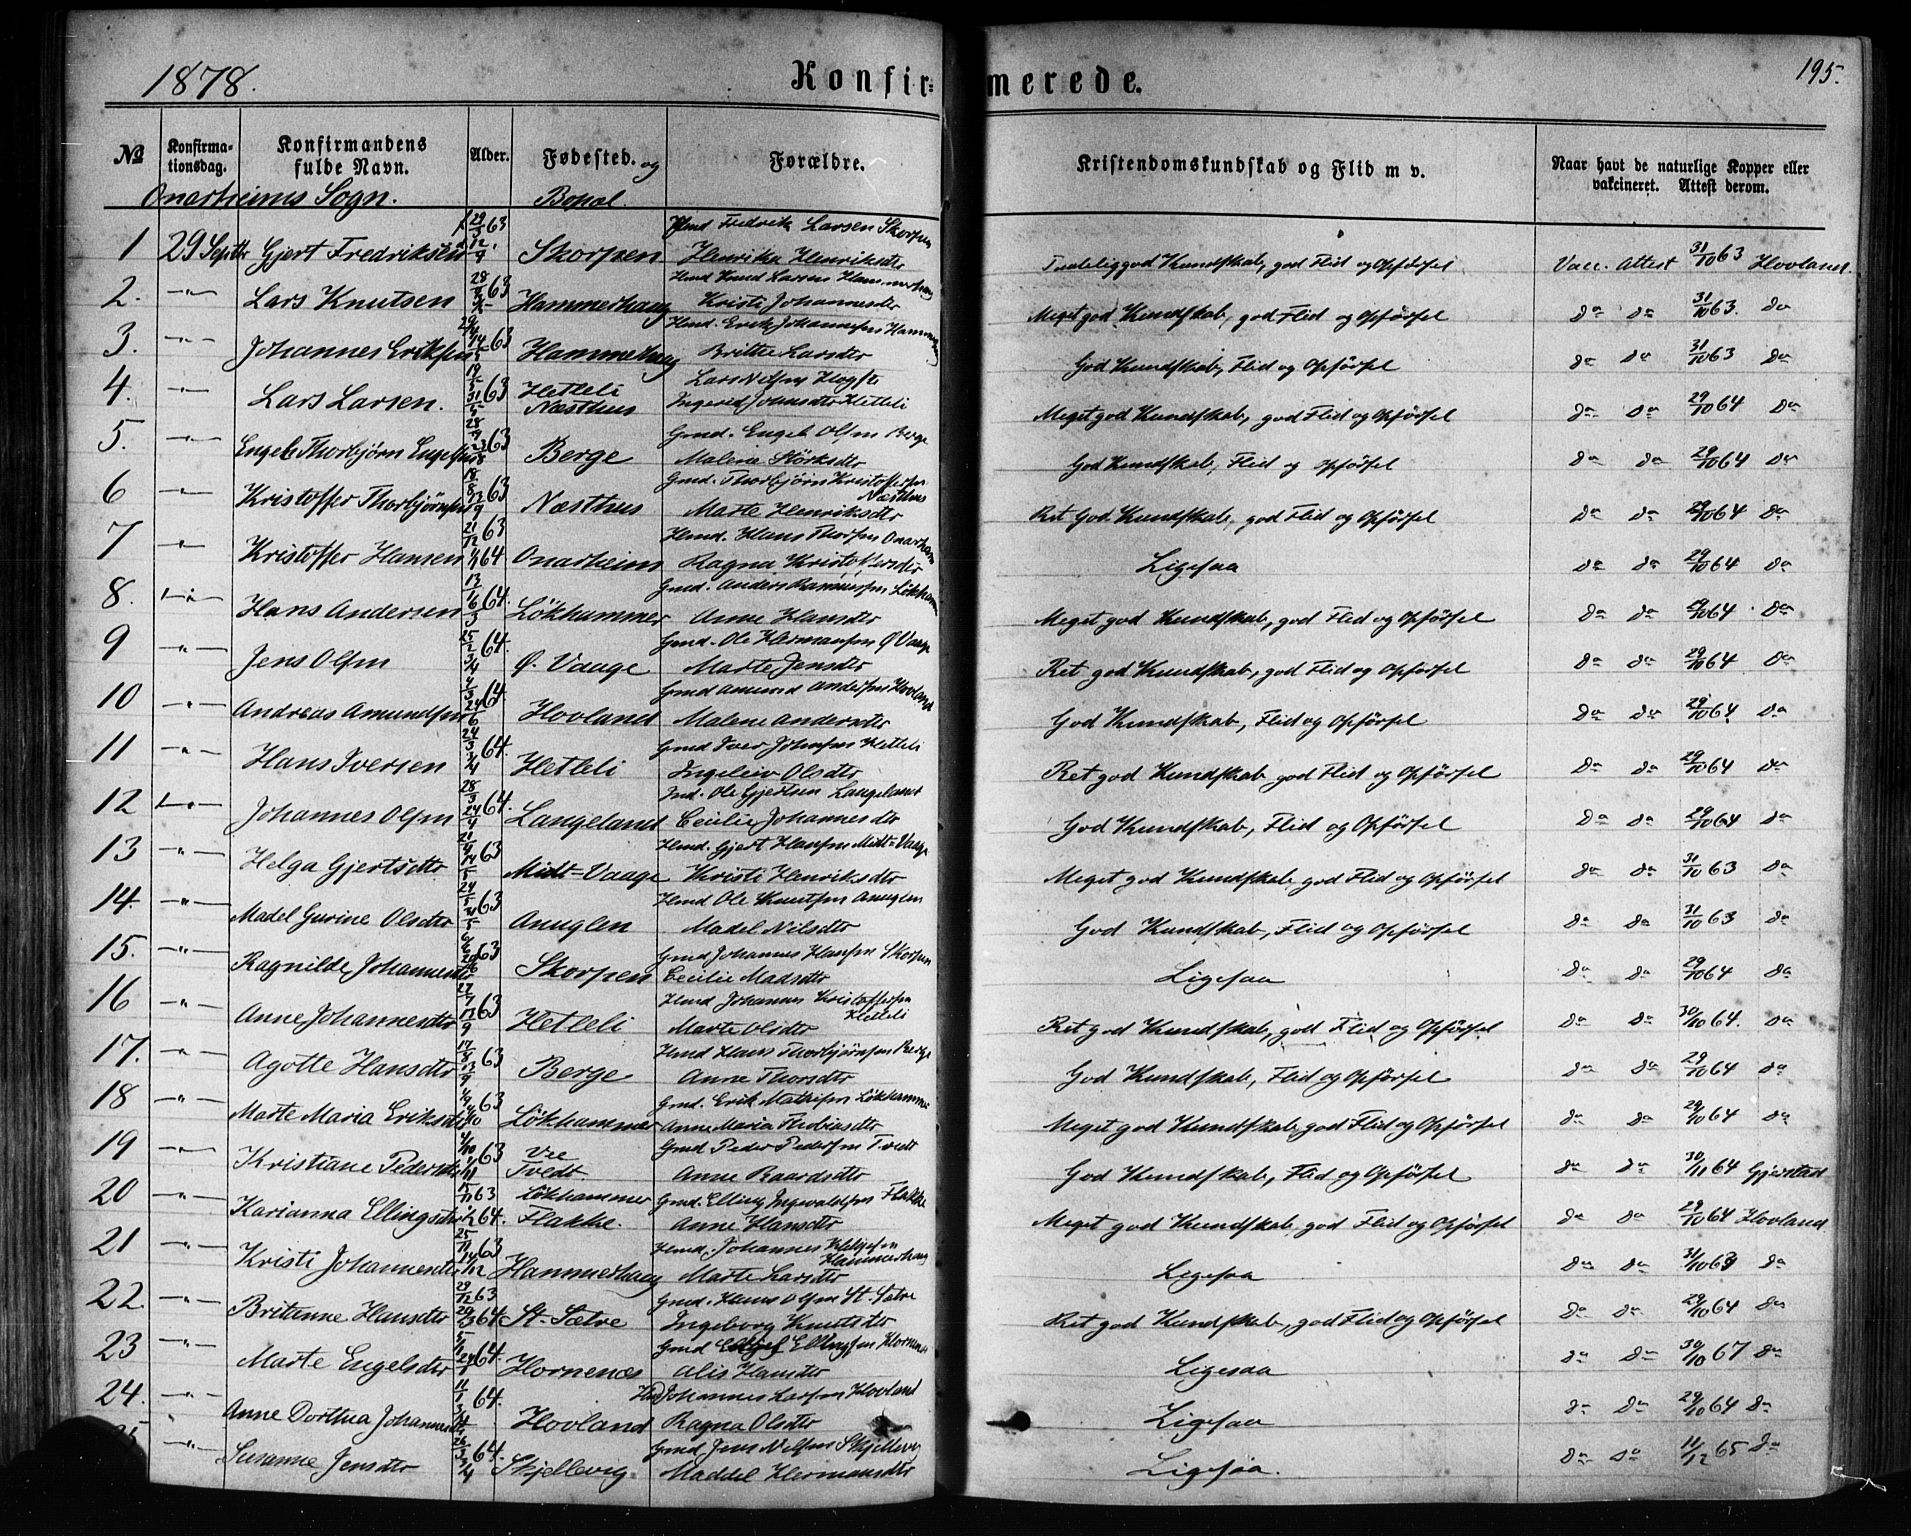 1878.
Konfir=
merede.
195.
№
Konfirma-
tionsdag.
Konfirmandens
fulde Navn.
Alder.
Fødested. og
Bopæl
Forældre.
Kristendomskundskab og Flid m v.
Naar havt de naturlige Kopper eller
vakcineret. Attest derom.
Onarheims Sogn.
Hmd Fredrik Larsen Skorpen
1 29 Septbr Gjert Fredriksen 29/3 63 12/4 Skorpen Henrika Henriksdtr Temmelig god Kundskab, god Flid og Opförsel Vacc. Attest 31/10 63 Hovland.
Hmd Knud Larsen Hammerhaug
2. -"- Lars Knutsen 63 Hammerhaug Kristi Johannesdtr Meget god Kundskab, god Flid og Opförsel do do 31/10 63. do
Hmd. Erik Johannesen Hammerhaug
3. -"- Johannes Eriksen 63 Hammerhaug Brithe Larsdtr God Kundskab, Flid og Opförsel do do 31/10 63 do
Lars Nilsen
4. -"- Lars Larsen. 19/5 63 31/5 Hetleli Næsthus Ingerid Johnsdtr Hetleli Meget god Kundskab, god Flid og Opförsel do do 29/10 64 do
Gmd. Engel Olsen Berge
5. -"- Engel Thorbjørn Engelsen 63 Berge Malene Störksdtr God Kundskab, Flid og Opförsel do do 29/10 64 do
Gmd. Thorbjørn Kristoffersen
Næsthus
6 -"- Kristoffer Thorbjørnsen 18/8 63 13/9 Næsthus Marte Henriksdtr Ret God Kundskab, god Flid og Opförsel do do 29/10 64 do
Hmd. Hans Thorsen Onarheim
7 -"- Kristoffer Hansen 21/12 63 1/1 64 Onarheim Ragna Kristoffersdtr Ligesaa do do 29/10 64 do
Gmd. Anders Rasmussen Lökhammer
8. -"- Hans Andersen 13/1 64. 6/3 Lökhammer Anne Hansdtr Meget god Kundskab, god Flid og Opförsel do do 29/10 64 do
Gmd. Ole Hermansen Ø Vaage
9 -"- Jens Olsen 25/2 64. 3/4 Ø. Vaage Marte Jensdtr Ret god Kundskab, god Flid og Opförsel do do 29/10 64 do
Gmd Amund Andersen Hovland
10 -"- Andreas Amundsen 64 Hovland Malene Andersdtr God Kundskab, Flid og Opförsel do do 29/10 64 do
Gmd Iver Johnsen Hetleli
11 -"- Hans Iversen 24/3 64. 3/4 Hetleli Ingeleiv Olsdtr Ret god Kundskab god Flid og Opförsel do do 29/10 64 do
Ind. Ole Gjertsen Langeland
12 -"- Johannes Olsen 28/3 64. 24/4 Langeland Cecilie Johannesdtr God Kundskab, Flid og Opförsel do do 29/10 64 do
Hmd. Gjert Hansen Midt-Vaage
13 -"- Helga Gjertsdtr 63 Midt-Vaage Kristi Henriksdtr Meget god Kundskab god Flid og Opförsel do do 31/10 63 do
Hmd Ole Knutsen Anuglen
14. -"- Madel Gurine Olsdtr 24/5 63 31/5 Anuglen Madel Nilsdtr God Kundskab, Flid og Opförsel do do 31/10 63 do
Gmd Johannes Hansen Skorpen
15. -"- Ragnilde Johannesdtr 63 Skorpen Cecilie Madsdtr Ligesaa do do 29/10 64 do
Hmd Johannes Kristoffersen
Hetleli
16 -"- Anne Johannesdtr 27/7 63 13/9 Hetleli Marte Olsdtr Ret god Kundskab, god Flid og Opförsel do do 30/10 64. do
Hmd Hans Thorbjørnsen Berge
17. -"- Agotte Hansdtr 17/8 63 13/9 Berge Anne Thorsdtr God Kundskab, Flid og Opförsel do do 29/10 64 do
Gmd. Erik Mathisen Lökhammer
18 -"- Marte Maria Eriksdtr 63 Lökhammer Anne Maria Thobiasdtr Meget god Kundskab, god Flid og Opförsel do do 29/10 64 do
Gmd Peder Pedersen Tvedt
19 -"- Kristiane Pedersdtr 4/10 63 1/11 Vre Tvedt. Anne Baardsdtr God Kundskab, Flid og Opförsel do do 30/11 64 Gjerstad
Gmd. Elling Ingvaldsen Flakke
20 -"- Karianna Ellingsdtr 15/11 63 1/2 64. Lökhammer Flakke. Anne Hansdtr Meget god Kundskab, god Flid og Opförsel do do 29/10 64 Hovland
Hmd. Johannes Helgesen
Hammerhaug
21 -"- Kristi Johannesdtr 25/11 63 Hammerhaug Marte Larsdtr Ligesaa do do 31/10 63 do
Gmd. Hans Olsen St. Sætre
22. -"- Brithanne Hansdtr 29/12 63 64 St. Sætre Ingeborg Knutsdtr Ret god Kundskab, god Flid og Opförsel do do 29/10 64 do
Gmd Engel Ellingsen Hornenes
23 -"- Marte Engelsdtr 5/1 64. 24/1 Hornenes Alis Hansdtr Ligesaa do do 30/10 67 do
Hmd Johannes Larsen Hovland
24. -"- Anne Dorthea Johannesdtr 64. Hovland Ragna Olsdtr Ligesaa do do 29/10 64 do
Gmd Jens Nilsen Skjellevig
25 -"- Susanne Jensdtr 64. 3/4 Skjellevig Maddel Hermansdtr Ligesaa. do do 11/12 65 do